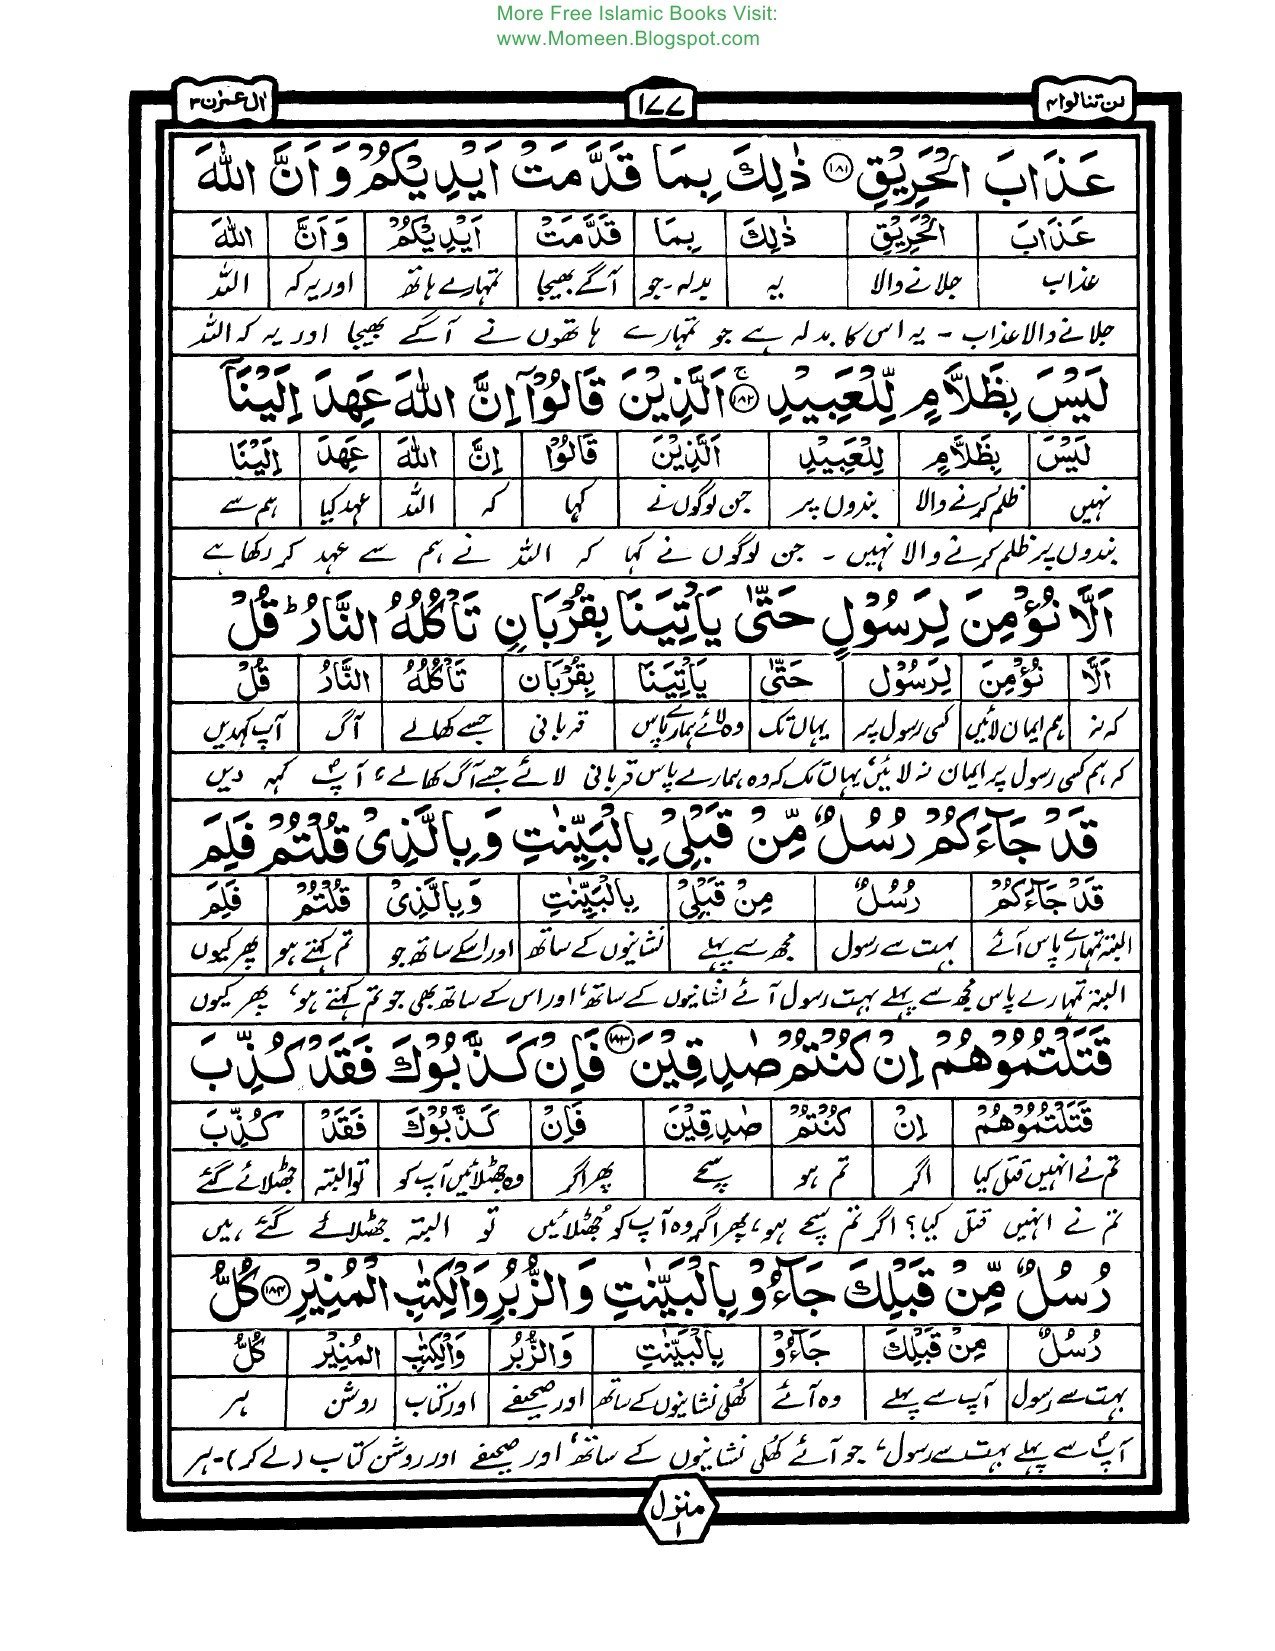 More Free Islamic Books Visit:
www.Momeen.Blogspot.com
لن تنالوا ۴
۱۷۷
اٰل عمرٰن ۳
عَذَابَ الْحَرِيْقِ ۝۱۸۱ ذٰلِكَ بِمَا قَدَّمَتْ اَيْدِيْكُمْ وَاَنَّ اللّٰهَ
عَذَابَ الْحَرِيْقِ ذٰلِكَ بِمَا قَدَّمَتْ اَيْدِيْكُمْ وَاَنَّ اللّٰهَ
عذاب جلانے والا یہ بدلہ - جو آگے بھیجا تمہارے ہاتھ اور یہ کہ اللہ
جلانے والا عذاب - یہ اس کا بدلہ ہے جو تمہارے ہاتھوں نے آگے بھیجا اور یہ کہ اللہ
لَيْسَ بِظَلَّامٍ لِّلْعَبِيْدِ ۝۱۸۲ۚ اَلَّذِيْنَ قَالُوْٓا اِنَّ اللّٰهَ عَهِدَ اِلَيْنَآ
لَيْسَ بِظَلَّامٍ لِلْعَبِيْدِ اَلَّذِيْنَ قَالُوْا اِنَّ اللّٰهَ عَهِدَ اِلَيْنَا
نہیں ظلم کرنے والا بندوں پر جن لوگوں نے کہا کہ اللہ عہد کیا ہم سے
بندوں پر ظلم کرنے والا نہیں - جن لوگوں نے کہا کہ اللہ نے ہم سے عہد کر رکھا ہے
اَلَّا نُؤْمِنَ لِرَسُوْلٍ حَتّٰى يَاْتِيَنَا بِقُرْبَانٍ تَاْكُلُهُ النَّارُ ؕ قُلْ
اَلَّا نُؤْمِنَ لِرَسُوْلٍ حَتّٰى يَاْتِيَنَا بِقُرْبَانٍ تَاْكُلُهُ النَّارُ قُلْ
کہ نہ ہم ایمان لائیں کسی رسول پر یہاں تک وہ لائے ہمارے پاس قربانی جسے کھالے آگ آپ کہدیں
کہ ہم کسی رسول پر ایمان نہ لائیں، یہاں تک کہ وہ ہمارے پاس قربانی لائے جسے آگ کھالے، آپؐ کہہ دیں
قَدْ جَآءَكُمْ رُسُلٌ مِّنْ قَبْلِيْ بِالْبَيِّنٰتِ وَبِالَّذِيْ قُلْتُمْ فَلِمَ
قَدْ جَآءَكُمْ رُسُلٌ مِنْ قَبْلِيْ بِالْبَيِّنٰتِ وَبِالَّذِيْ قُلْتُمْ فَلِمَ
البتہ تمہارے پاس آئے بہت سے رسول مجھ سے پہلے نشانیوں کے ساتھ اور اسکے ساتھ جو تم کہتے ہو پھر کیوں
البتہ تمہارے پاس مجھ سے پہلے بہت رسول آئے نشانیوں کے ساتھ، اور اس کے ساتھ بھی جو تم کہتے ہو، پھر کیوں
قَتَلْتُمُوْهُمْ اِنْ كُنْتُمْ صٰدِقِيْنَ ۝۱۸۳ فَاِنْ كَذَّبُوْكَ فَقَدْ كُذِّبَ
قَتَلْتُمُوْهُمْ اِنْ كُنْتُمْ صٰدِقِيْنَ فَاِنْ كَذَّبُوْكَ فَقَدْ كُذِّبَ
تم نے انہیں قتل کیا اگر تم ہو سچے پھر اگر وہ جھٹلائیں آپ کو تو البتہ جھٹلائے گئے
تم نے انہیں قتل کیا؟ اگر تم سچے ہو، پھر اگر وہ آپ کو جھٹلائیں تو البتہ جھٹلائے گئے ہیں
رُسُلٌ مِّنْ قَبْلِكَ جَآءُوْ بِالْبَيِّنٰتِ وَالزُّبُرِ وَالْكِتٰبِ الْمُنِيْرِ ۝۱۸۴ كُلُّ
رُسُلٌ مِنْ قَبْلِكَ جَآءُوْ بِالْبَيِّنٰتِ وَالزُّبُرِ وَالْكِتٰبِ الْمُنِيْرِ كُلُّ
بہت سے رسول آپ سے پہلے وہ آئے کھلی نشانیوں کے ساتھ اور صحیفے اور کتاب روشن ہر
آپؐ سے پہلے بہت سے رسول، جو آئے کھلی نشانیوں کے ساتھ، اور صحیفے اور روشن کتاب (لے کر) - ہر
منزل ۱